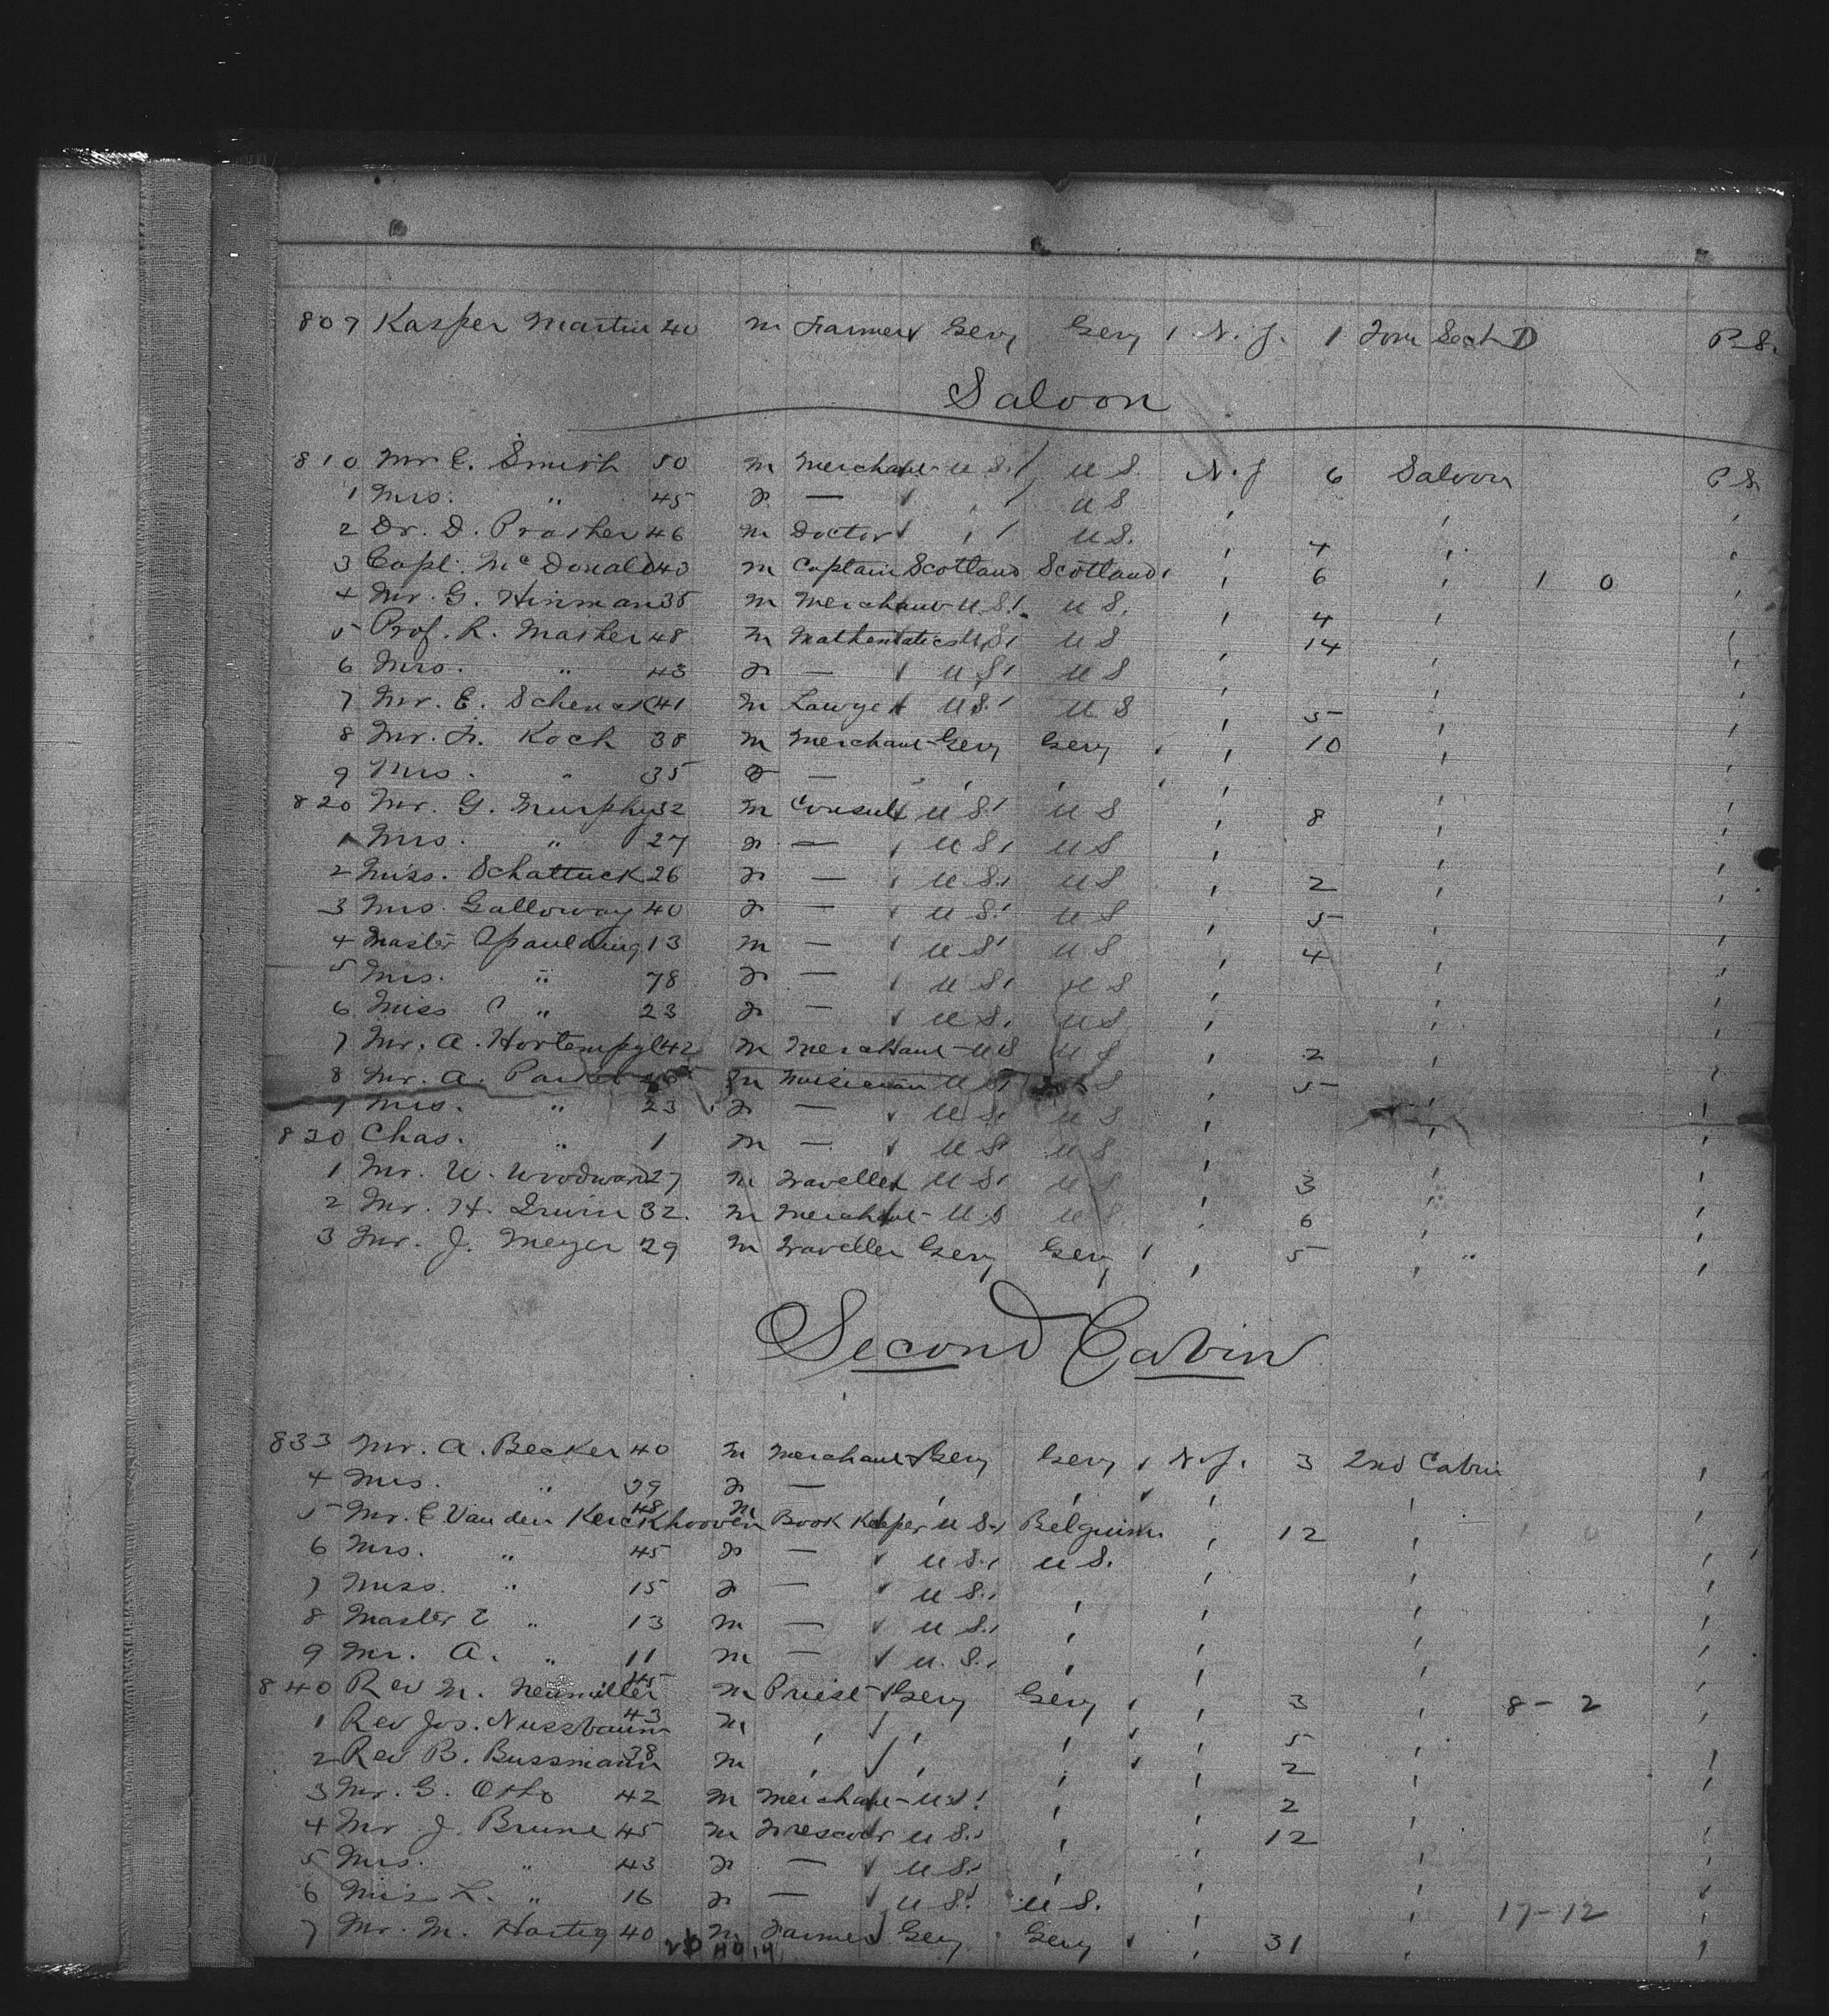 809 Kasper Martin 40 m Farmer Gery Gery N. J. 1 Sect D P. S.
Saloon
810 Mr C. Smith 50 m Merchant U S. U S. N. J 6 Saloon P S.
1 Mrs. " 45 f — U S
2 Dr. D. Prasher 46 m Doctor U S. 4
3 Capt. Mc Donald 43 m Captain Scotland Scotland 6 1 0
4 Mr. G. Hinman 35 m Merchant U S. U S. 4
5 Prof. R. Masher 48 m U S U S 14
6 Mrs. " 43 f — U S U S
7 Mr. E. Schenck 41 m Lawyer U S. U S 5
8 Mr. F. Koch 38 m Merchant Gery Gery 10
9 Mrs. " 35 f —
820 Mr. G. Murphy 32 m Consul U S. U S 8
1 Mrs. " 27 f — U S U S
2 Miss. Schattuck 26 f — U. S. U S 2
3 Mrs. Galloway 40 f — U S. U S 5
4 Master Spaulding 13 m — U S U S 4
5 Mrs. " 78 f — U S. U S
6 Miss C " 23 f — U S. U S
7 Mr. A. 42 m Merchant U S U S 2
8 Mr. A. m Musician U S U S 5
9 Mrs. " 23 f — U S. U S
830 Chas. " 1 m — U S U S
1 Mr. W. Woodward 27 m Traveller U S. U S 3
2 Mr. H. Irwin 32. m Merchant U. S U S. 6
3 Mr. J. Meyer 29 m Traveller Gery Gery 5 "
Second Cabin
833 Mr. A. Becker 40 m Merchant Gery Gery N. J. 3 2nd Cabin
4 Mrs. " 39 f —
5 Mr. C Van den Kerckhooven 48 m Book Keeper U S. Belguim 12 1 0
6 Mrs. " 45 f — U S. U S.
7 Miss. " 15 f — U S.
8 Master E " 13 m — U S.
9 Mr. A. " 11 m — U. S.
840 Rev M. Neumiller 45 m Priest Gery Gery 3 8 - 2
1 Rev Jos. Nussbaum 43 m 5
2 Rev B. Bussmann 38 m 2
3 Mr. G. Otto 42 m Merchant U S 2
4 Mr J. Brune 45 m U S. 12
5 Mrs. " 43 f — U S.
6 Miss L. " 16 f — U S. U S. 17-12
7 Mr. M. Hartig 40 m Farmer Gery Gery 31